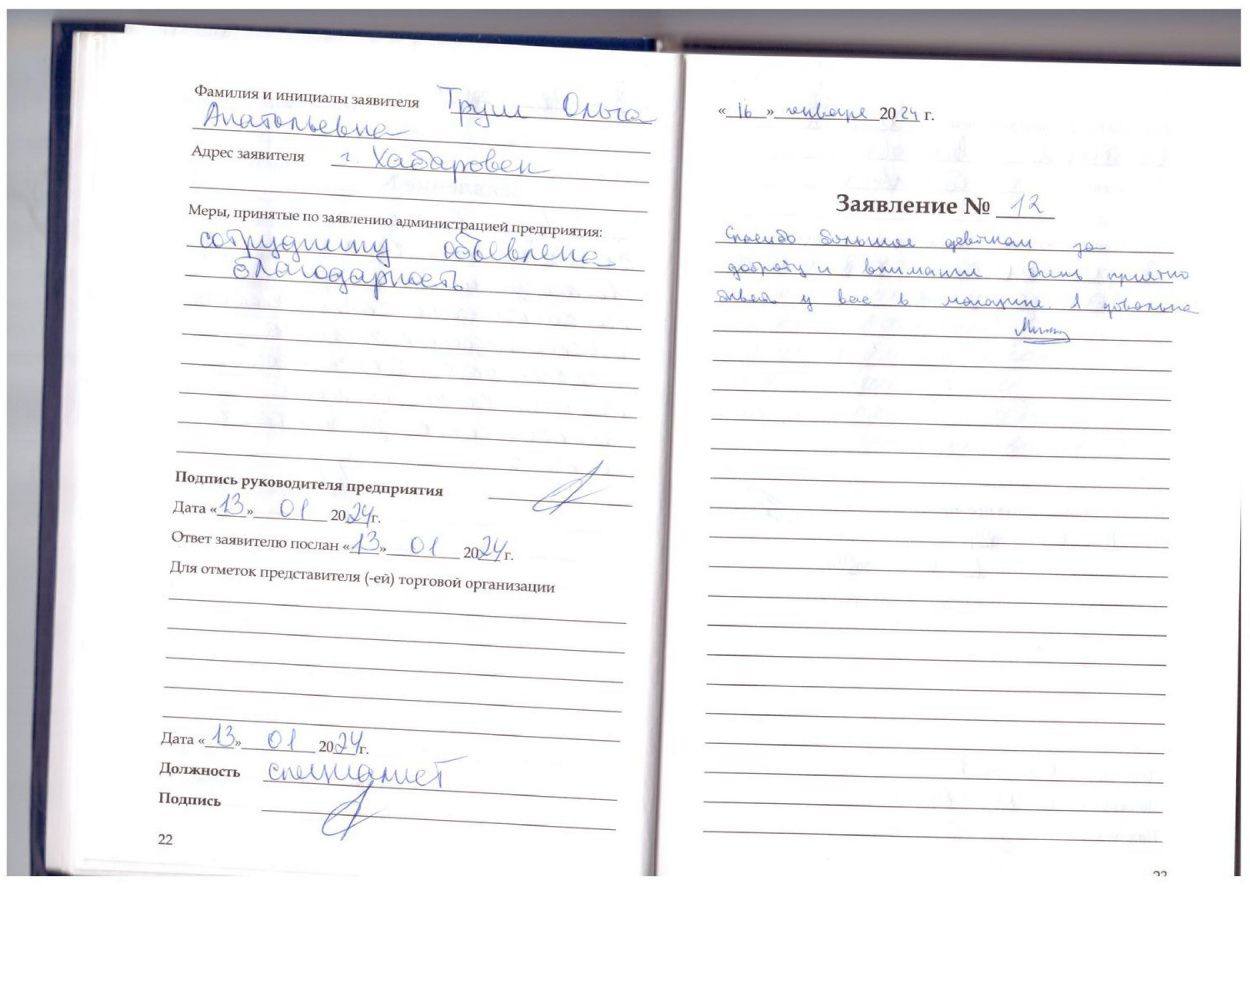 Фамилия и инициалы заявителя Труш Ольга
Анатольевна
Адрес заявителя г. Хабаровск
Меры, принятые по заявлению администрацией предприятия:
сотруднику объявлена
благодарность
Подпись руководителя предприятия
Дата «13» 01 2024г.
Ответ заявителю послан «13» 01 2024г.
Для отметок представителя (-ей) торговой организации
Дата «13» 01 2024г.
Должность специалист
Подпись
22
«16» января 2024 г.
Заявление № 12
Спасибо большое девочкам за
доброту и внимание. Очень приятно
у вас в магазине. Я довольна